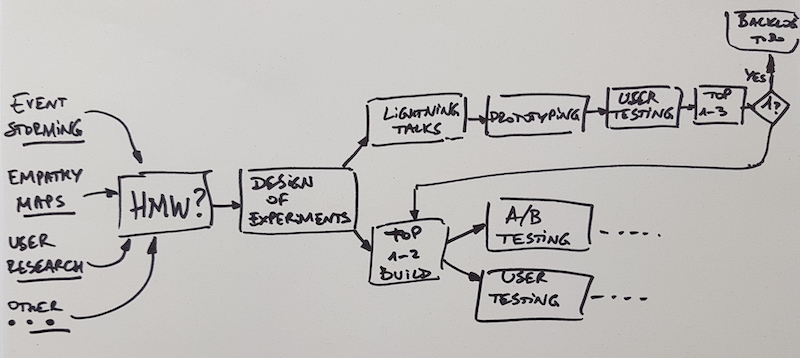 EVENT
STORMING
EMPATHY
MAPS
USER
RESEARCH
OTHER
...
HMW?
DESIGN
OF
EXPERIMENTS
LIGHTNING
TALKS
PROTOTYPING
USER
TESTING
TOP
1-3
1?
YES
BACKLOG
TODO
TOP
1-2
BUILD
A/B
TESTING
.....
USER
TESTING
....